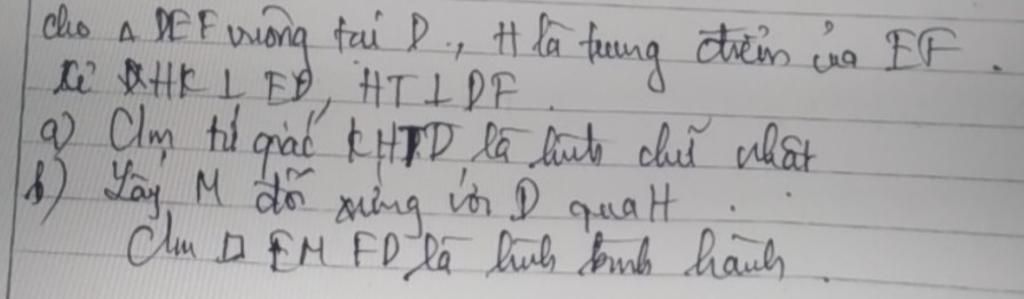 Cho Δ DEF vuông tại D, H là trung điểm của EF.
Kẻ HK ⊥ ED, HT ⊥ DF.
a) Cm tứ giác KHTD là hình chữ nhật
b) Lấy M đối xứng với D qua H.
Cm □ EMFD là hình bình hành.